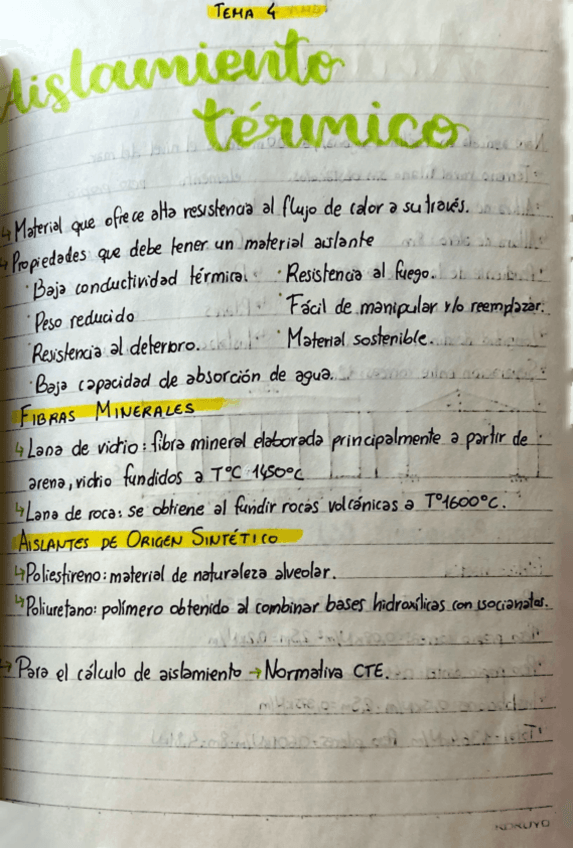 TEMA 4
Aislamiento
térmico
↳ Material que ofrece alta resistencia al flujo de calor a su través.
↳ Propiedades que debe tener un material aislante
· Baja conductividad térmica. · Resistencia al fuego.
· Peso reducido · Fácil de manipular y/o reemplazar.
Resistencia al deterioro. · Material sostenible.
· Baja capacidad de absorción de agua.
FIBRAS MINERALES
↳ Lana de vidrio: fibra mineral elaborada principalmente a partir de
arena, vidrio fundidos a TºC 1450ºC
↳ Lana de roca: se obtiene al fundir rocas volcánicas a Tº1600ºC.
AISLANTES DE ORIGEN SINTÉTICO
↳ Poliestireno: material de naturaleza alveolar.
↳ Poliuretano: polímero obtenido al combinar bases hidroxílicas con isocianatos.
→ Para el cálculo de aislamiento → Normativa CTE.
KOKUYO